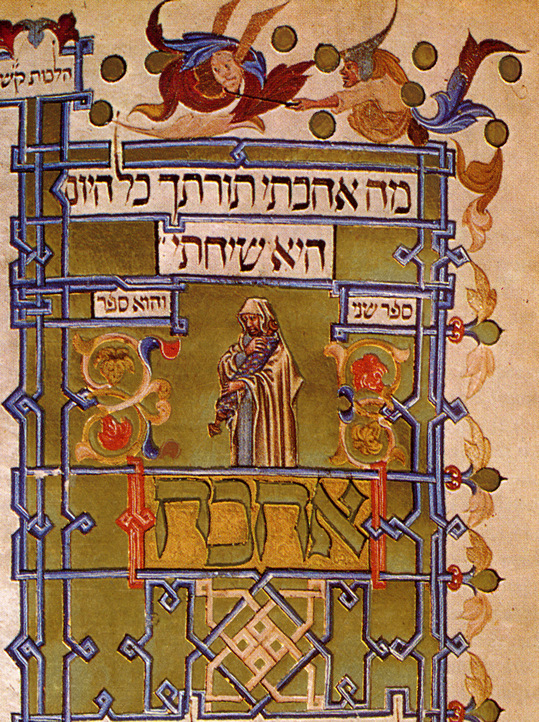 הלכות ק״ש
מה אהבתי תורתך כל היום
היא שיחתי
ספר שני
והוא ספר
אהבה